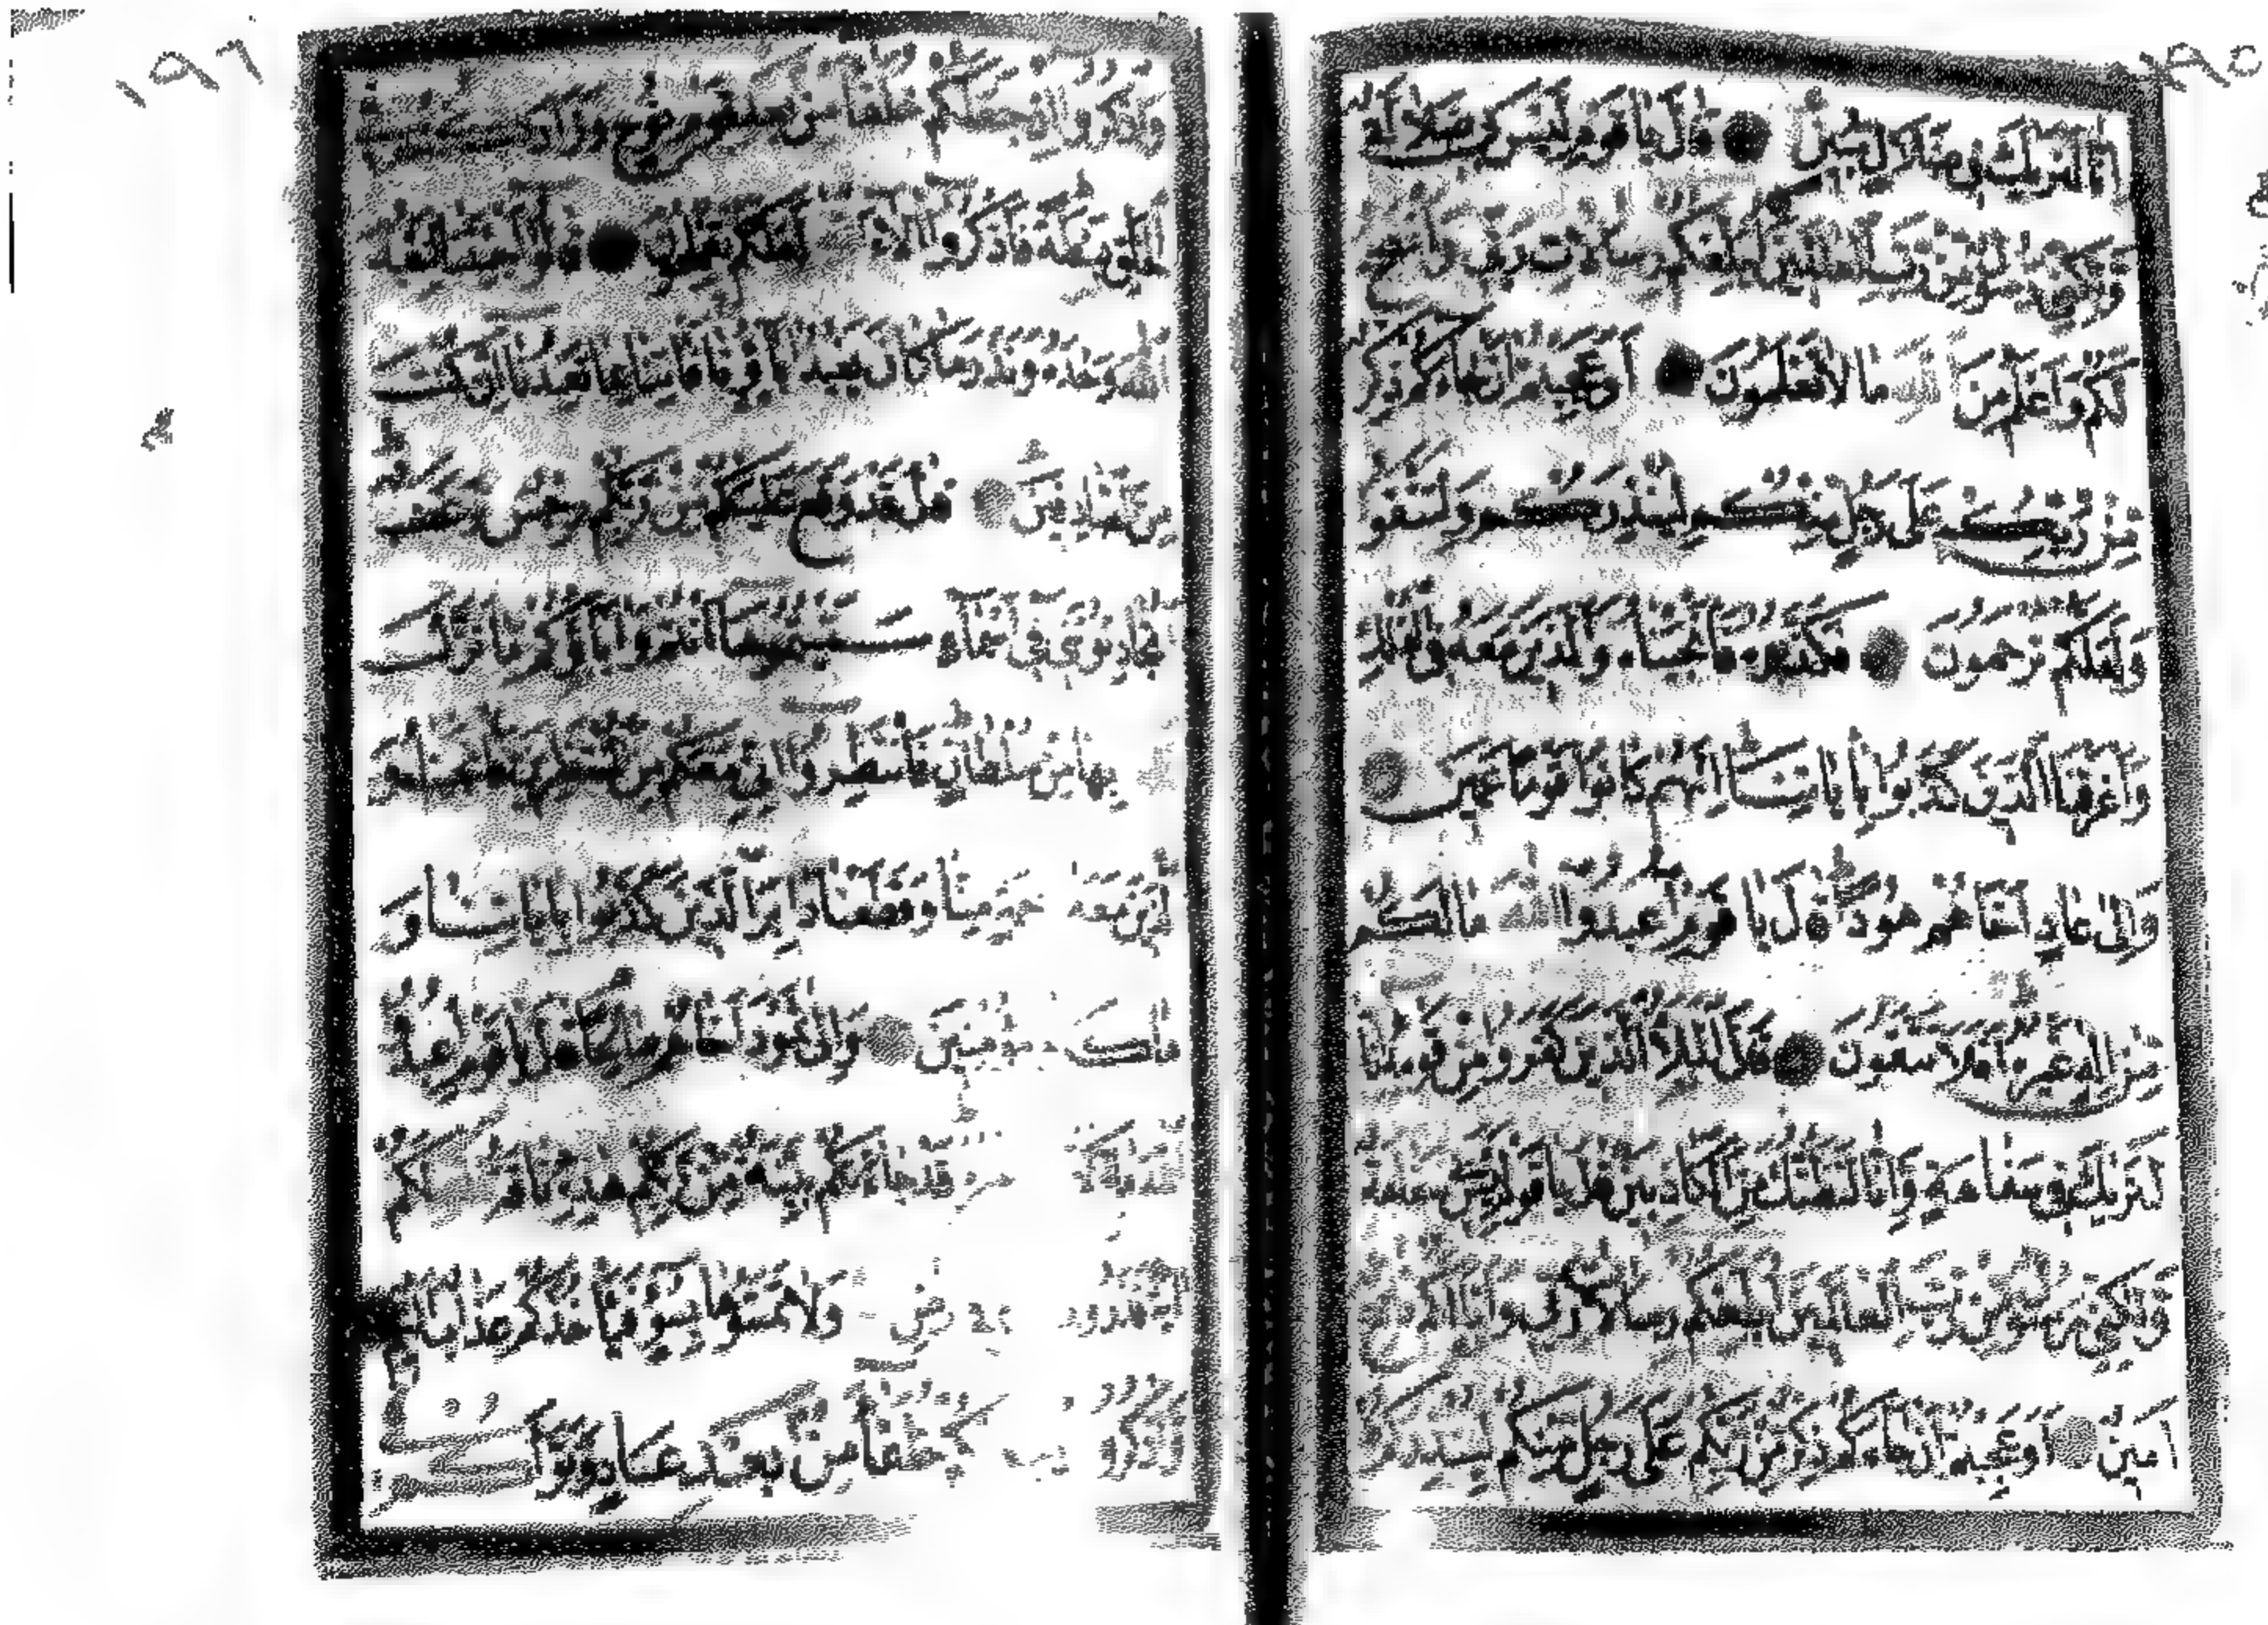 ١٩٥
انا لنريك في ضلال مبين قال يا قوم ليس بي ضلالة
ولكني رسول من رب العالمين ابلغكم رسالات ربي وانصح
لكم واعلم من الله ما لا تعلمون اوعجبتم ان جاءكم ذكر
من ربكم على رجل منكم لينذركم ولتتقوا
ولعلكم ترحمون فكذبوه فانجيناه والذين معه في الفلك
واغرقنا الذين كذبوا باياتنا انهم كانوا قوما عمين
والى عاد اخاهم هودا قال يا قوم اعبدوا الله ما لكم
من اله غيره افلا تتقون قال الملا الذين كفروا من قومه انا
لنريك في سفاهة وانا لنظنك من الكاذبين قال يا قوم ليس بي سفاهة
ولكني رسول من رب العالمين ابلغكم رسالات ربي وانا لكم ناصح
امين اوعجبتم ان جاءكم ذكر من ربكم على رجل منكم لينذركم
١٩٦
واذكروا اذ جعلكم خلفاء من بعد قوم نوح وزادكم
في الخلق بصطة فاذكروا الاء الله لعلكم تفلحون قالوا اجئتنا لنعبد
الله وحده ونذر ما كان يعبد اباؤنا فاتنا بما تعدنا ان كنت
من الصادقين قال قد وقع عليكم من ربكم رجس وغضب
اتجادلونني في اسماء سميتموها انتم واباؤكم ما نزل
الله بها من سلطان فانتظروا اني معكم من المنتظرين فانجيناه و
الذين معه برحمة منا وقطعنا دابر الذين كذبوا باياتنا و
ما كانوا مؤمنين والى ثمود اخاهم صالحا قال يا قوم اعبدوا
الله ما لكم من غيره قد جاءتكم بينة من ربكم هذه ناقة الله لكم
اية فذروها في ارض ولا تمسوها بسوء فياخذكم عذاب اليم
واذكروا اذ جعلكم خلفاء من بعد عاد وبواكم